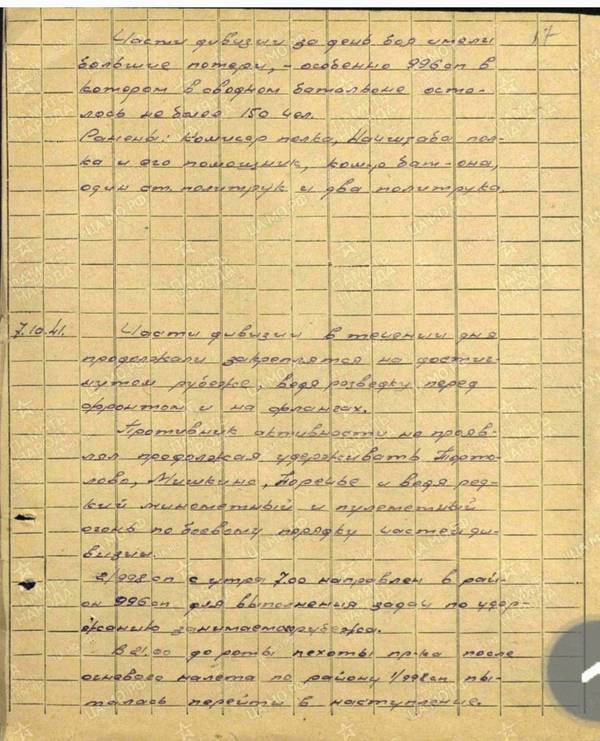 17
Части дивизии за день боя имели
большие потери, – особенно 996 сп в
котором в сводном батальоне оста-
лось не более 150 чел.
Ранены: комисар полка, Начштаба пол-
ка и его помощник, комдр бат-она,
один ст. политрук и два политрука.
7.10.41. Части дивизии в течении дня
продолжали закреплятся на достиг-
нутом рубеже, ведя розведку перед
фронтом и на флангах.
Противник активности не прояв-
лял продолжая удерживать Порто-
лово, Мишкино, Поречье и ведя ред-
кий минометный и пулеметный
огонь по боевому порядку частей ди-
визии.
2/998 сп с утра 7.00 направлен в рай-
он 996 сп для выполнения задач по удер-
жанию занимаемого рубежа.
В 21.00 до роты пехоты пр-ка после
огневого налета по району 1/998 сп пы-
талась перейти в наступление.